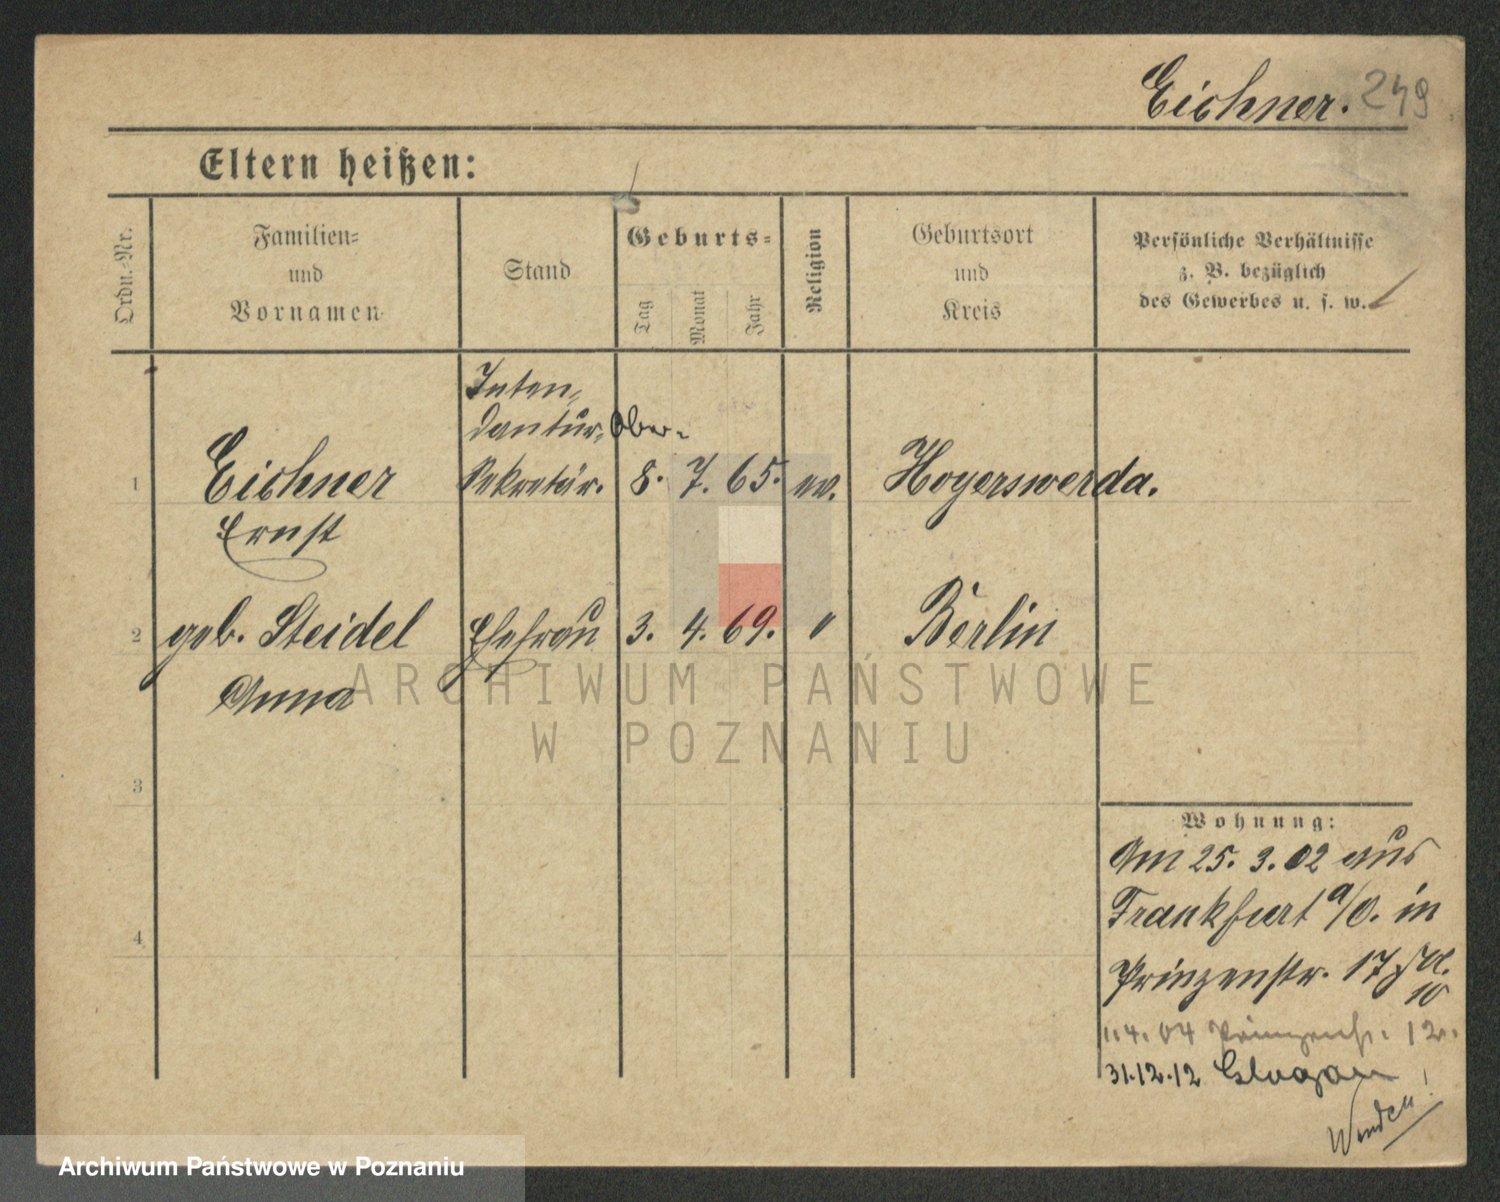 Eichner. 249
Eltern heißen:
Ordn.-Nr.
Familien-
und
Vornamen
Stand
Geburts-
Tag
Monat
Jahr
Religion
Geburtsort
und
Kreis
Persönliche Verhältnisse
z. B. bezüglich
des Gewerbes u. s. w.
Inten-
dantur, Ober-
1 Eichner Sekretär. 8. 7. 65. ev. Hoyerswerda.
Ernst
2 geb. Steidel Ehefrau 3. 4. 69. " Berlin
Anna
3
4
Wohnung:
Am 25. 3. 02 aus
Frankfurt a/O. in
Prinzenstr. 17
10
1.4.04 Prinzenstr. 12.
31.12.12 Glogau
Wenden!
ARCHIWUM PAŃSTWOWE
W POZNANIU
Archiwum Państwowe w Poznaniu